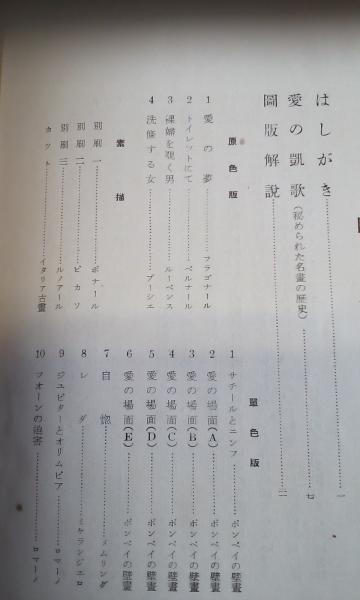 はしがき……一
愛の凱歌(秘められた名畫の歴史)……七
圖版解說……三
原色版
1 愛の夢……フラゴナール
2 トイレットにて……ベルナール
3 裸婦を覗く男……ルーベンス
4 洗滌する女……ブーシエ
素描
別刷一……ボナール
別刷二……ピカソ
別刷三……ルノアール
カット……イタリア古畫
單色版
1 サチールとニンフ……ポンペイの壁畫
2 愛の場面(A)……ポンペイの壁畫
3 愛の場面(B)……ポンペイの壁畫
4 愛の場面(C)……ポンペイの壁畫
5 愛の場面(D)……ポンペイの壁畫
6 愛の場面(E)……ポンペイの壁畫
7 自惚……メムリンダ
8 レダ……ミケランジエロ
9 ジユピターとオリムピア……ロマーノ
10 フオーンの迫害……ロマーノ